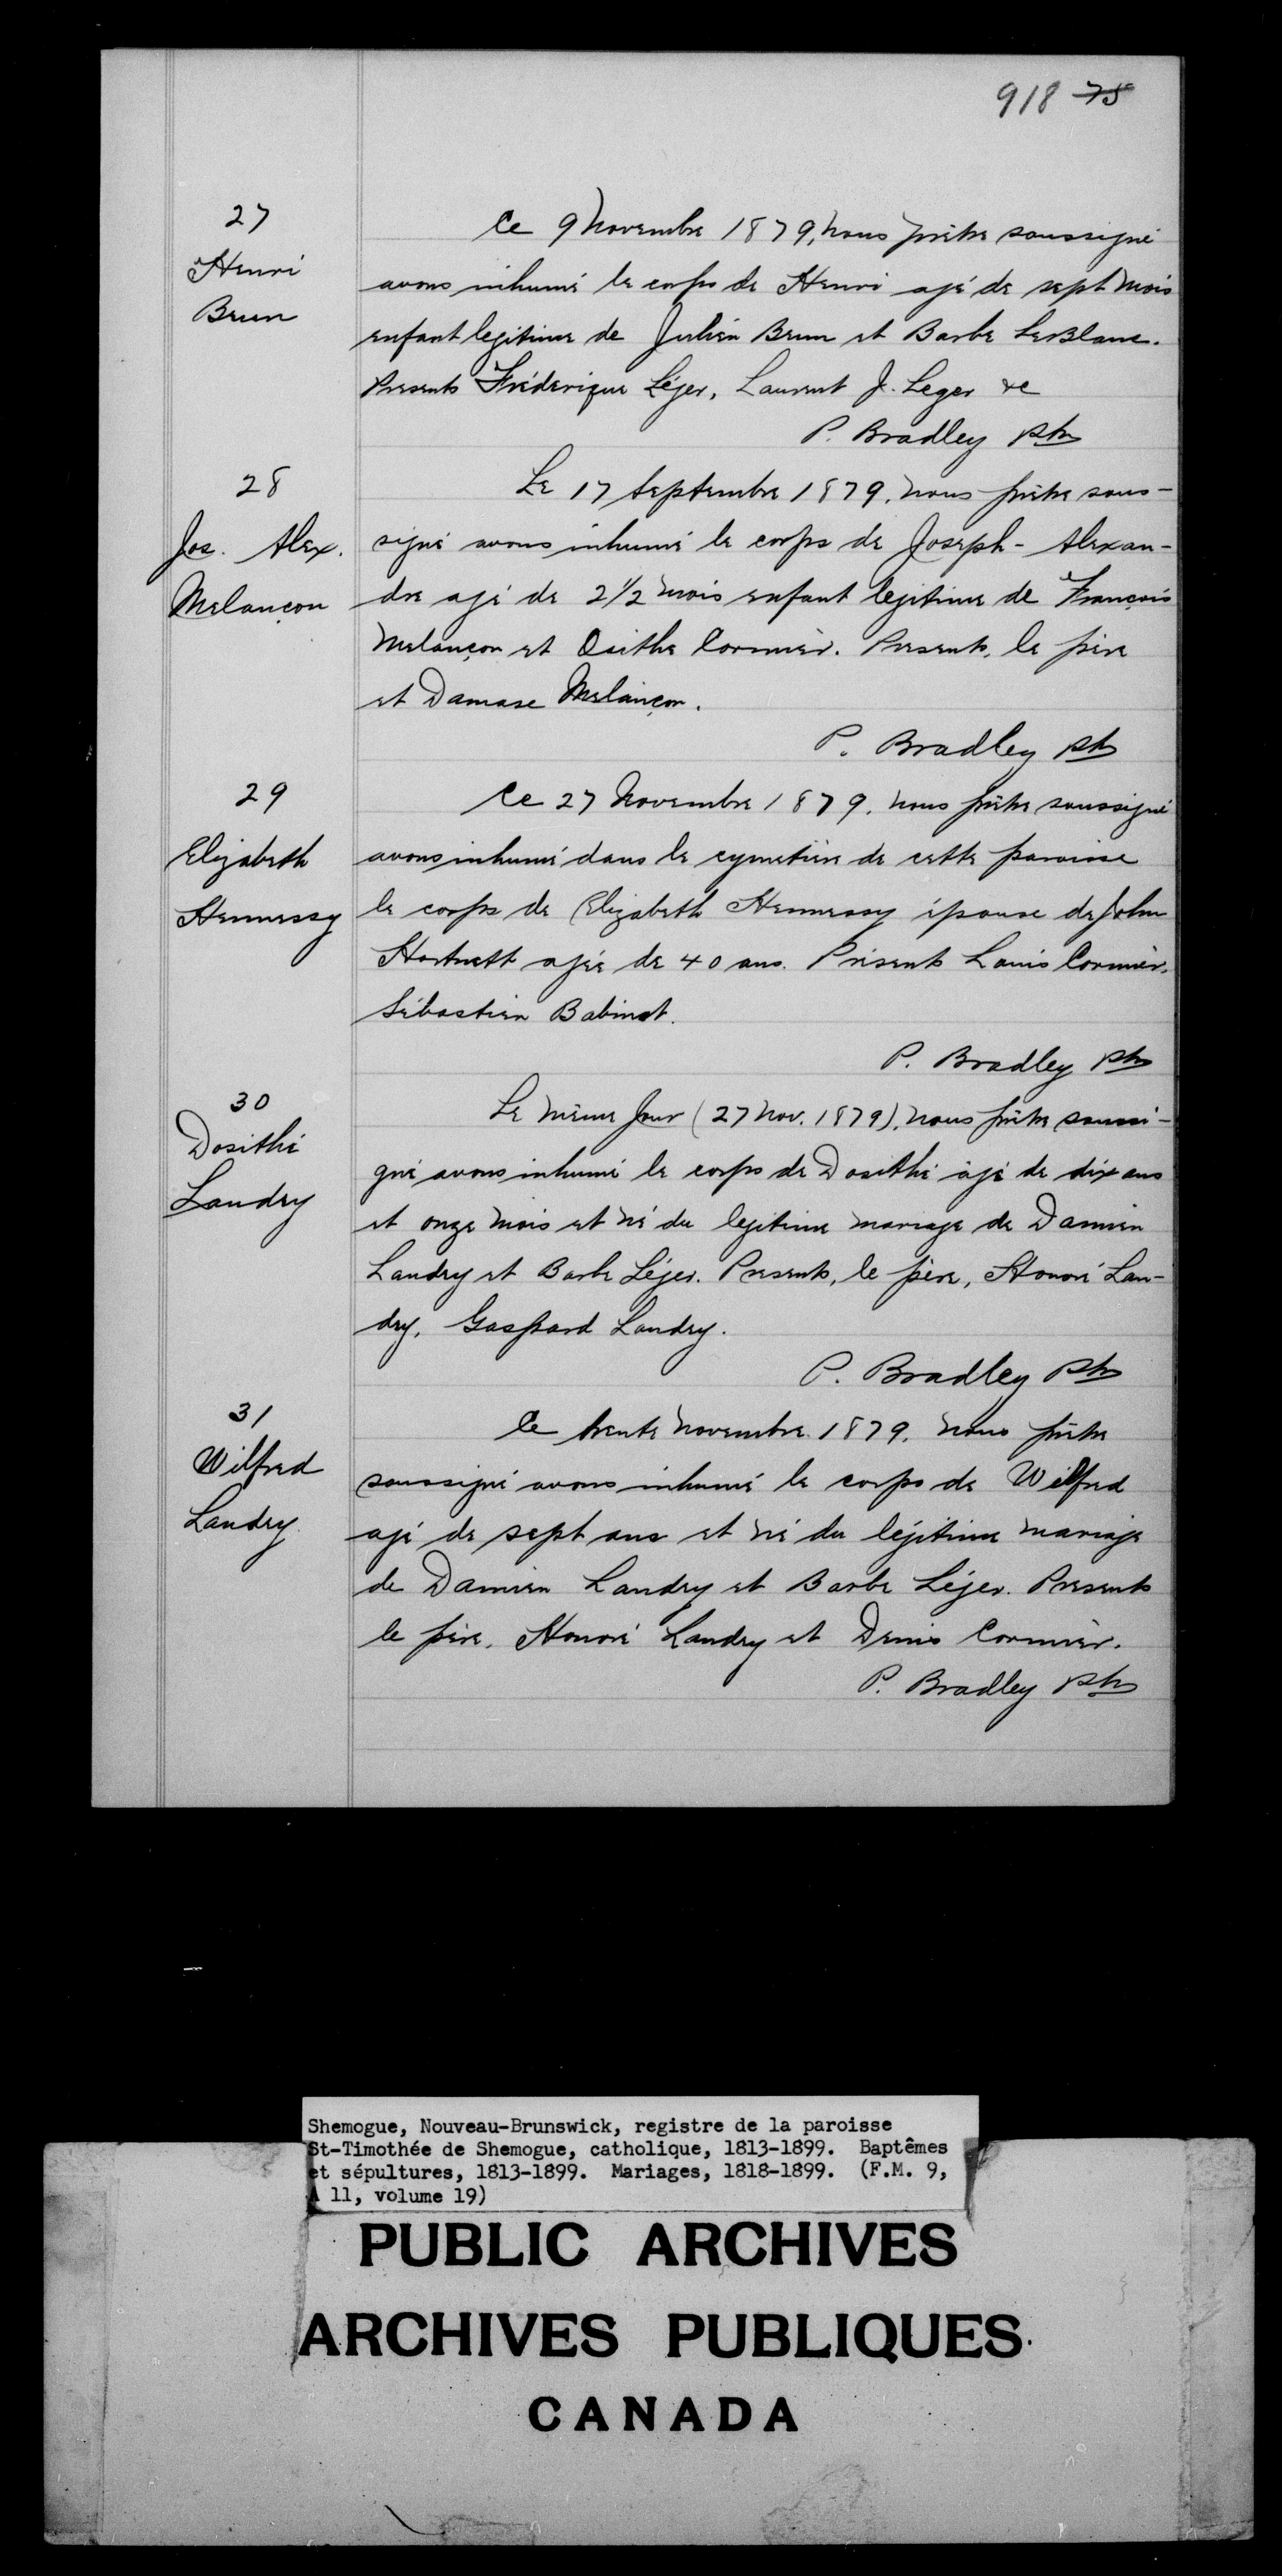 918 75
27
Henri
Brun
Ce 9 Novembre 1879, nous prêtre soussigné
avons inhumé le corps de Henri agé de sept mois
enfant legitime de Julien Brun et Barbe LeBlanc.
Presents Fréderique Léger, Laurent J. Leger &c
P. Bradley Ptr
28
Jos. Alex.
Melançon
Le 17 Septembre 1879, nous prêtre sous-
signé avons inhumé le corps de Joseph-Alexan-
dre agé de 2 1/2 mois enfant legitime de François
Melançon et Osithe Cormier. Presents, le père
et Damase Melançon.
P. Bradley Ptr
29
Elizabeth
Hennessy
Ce 27 Novembre 1879, nous prêtre soussigné
avons inhumé dans le cymetière de cette paroisse
le corps de Elizabeth Hennessy épouse de John
Hartnett agée de 40 ans. Présents Louis Cormier,
Sébastien Babinot.
P. Bradley Ptr
30
Dosithé
Landry
Le même Jour (27 Nov. 1879), nous prêtre soussi-
gné avons inhumé le corps de Dosithé âgé de dix ans
et onze mois et né du legitime mariage de Damien
Landry et Barbe Léger. Presents, le père, Honoré Lan-
dry, Gaspard Landry.
P. Bradley Ptr
31
Wilfred
Landry
Ce trente Novembre 1879, nous prêtre
soussigné avons inhumé le corps de Wilfred
agé de sept ans et né du légitime mariage
de Damien Landry et Barbe Léger. Presents
le père, Honoré Landry et Denis Cormier.
P. Bradley Ptr
Shemogue, Nouveau-Brunswick, registre de la paroisse
St-Timothée de Shemogue, catholique, 1813-1899. Baptêmes
et sépultures, 1813-1899. Mariages, 1818-1899. (F.M. 9,
A 11, volume 19)
PUBLIC ARCHIVES
ARCHIVES PUBLIQUES
CANADA